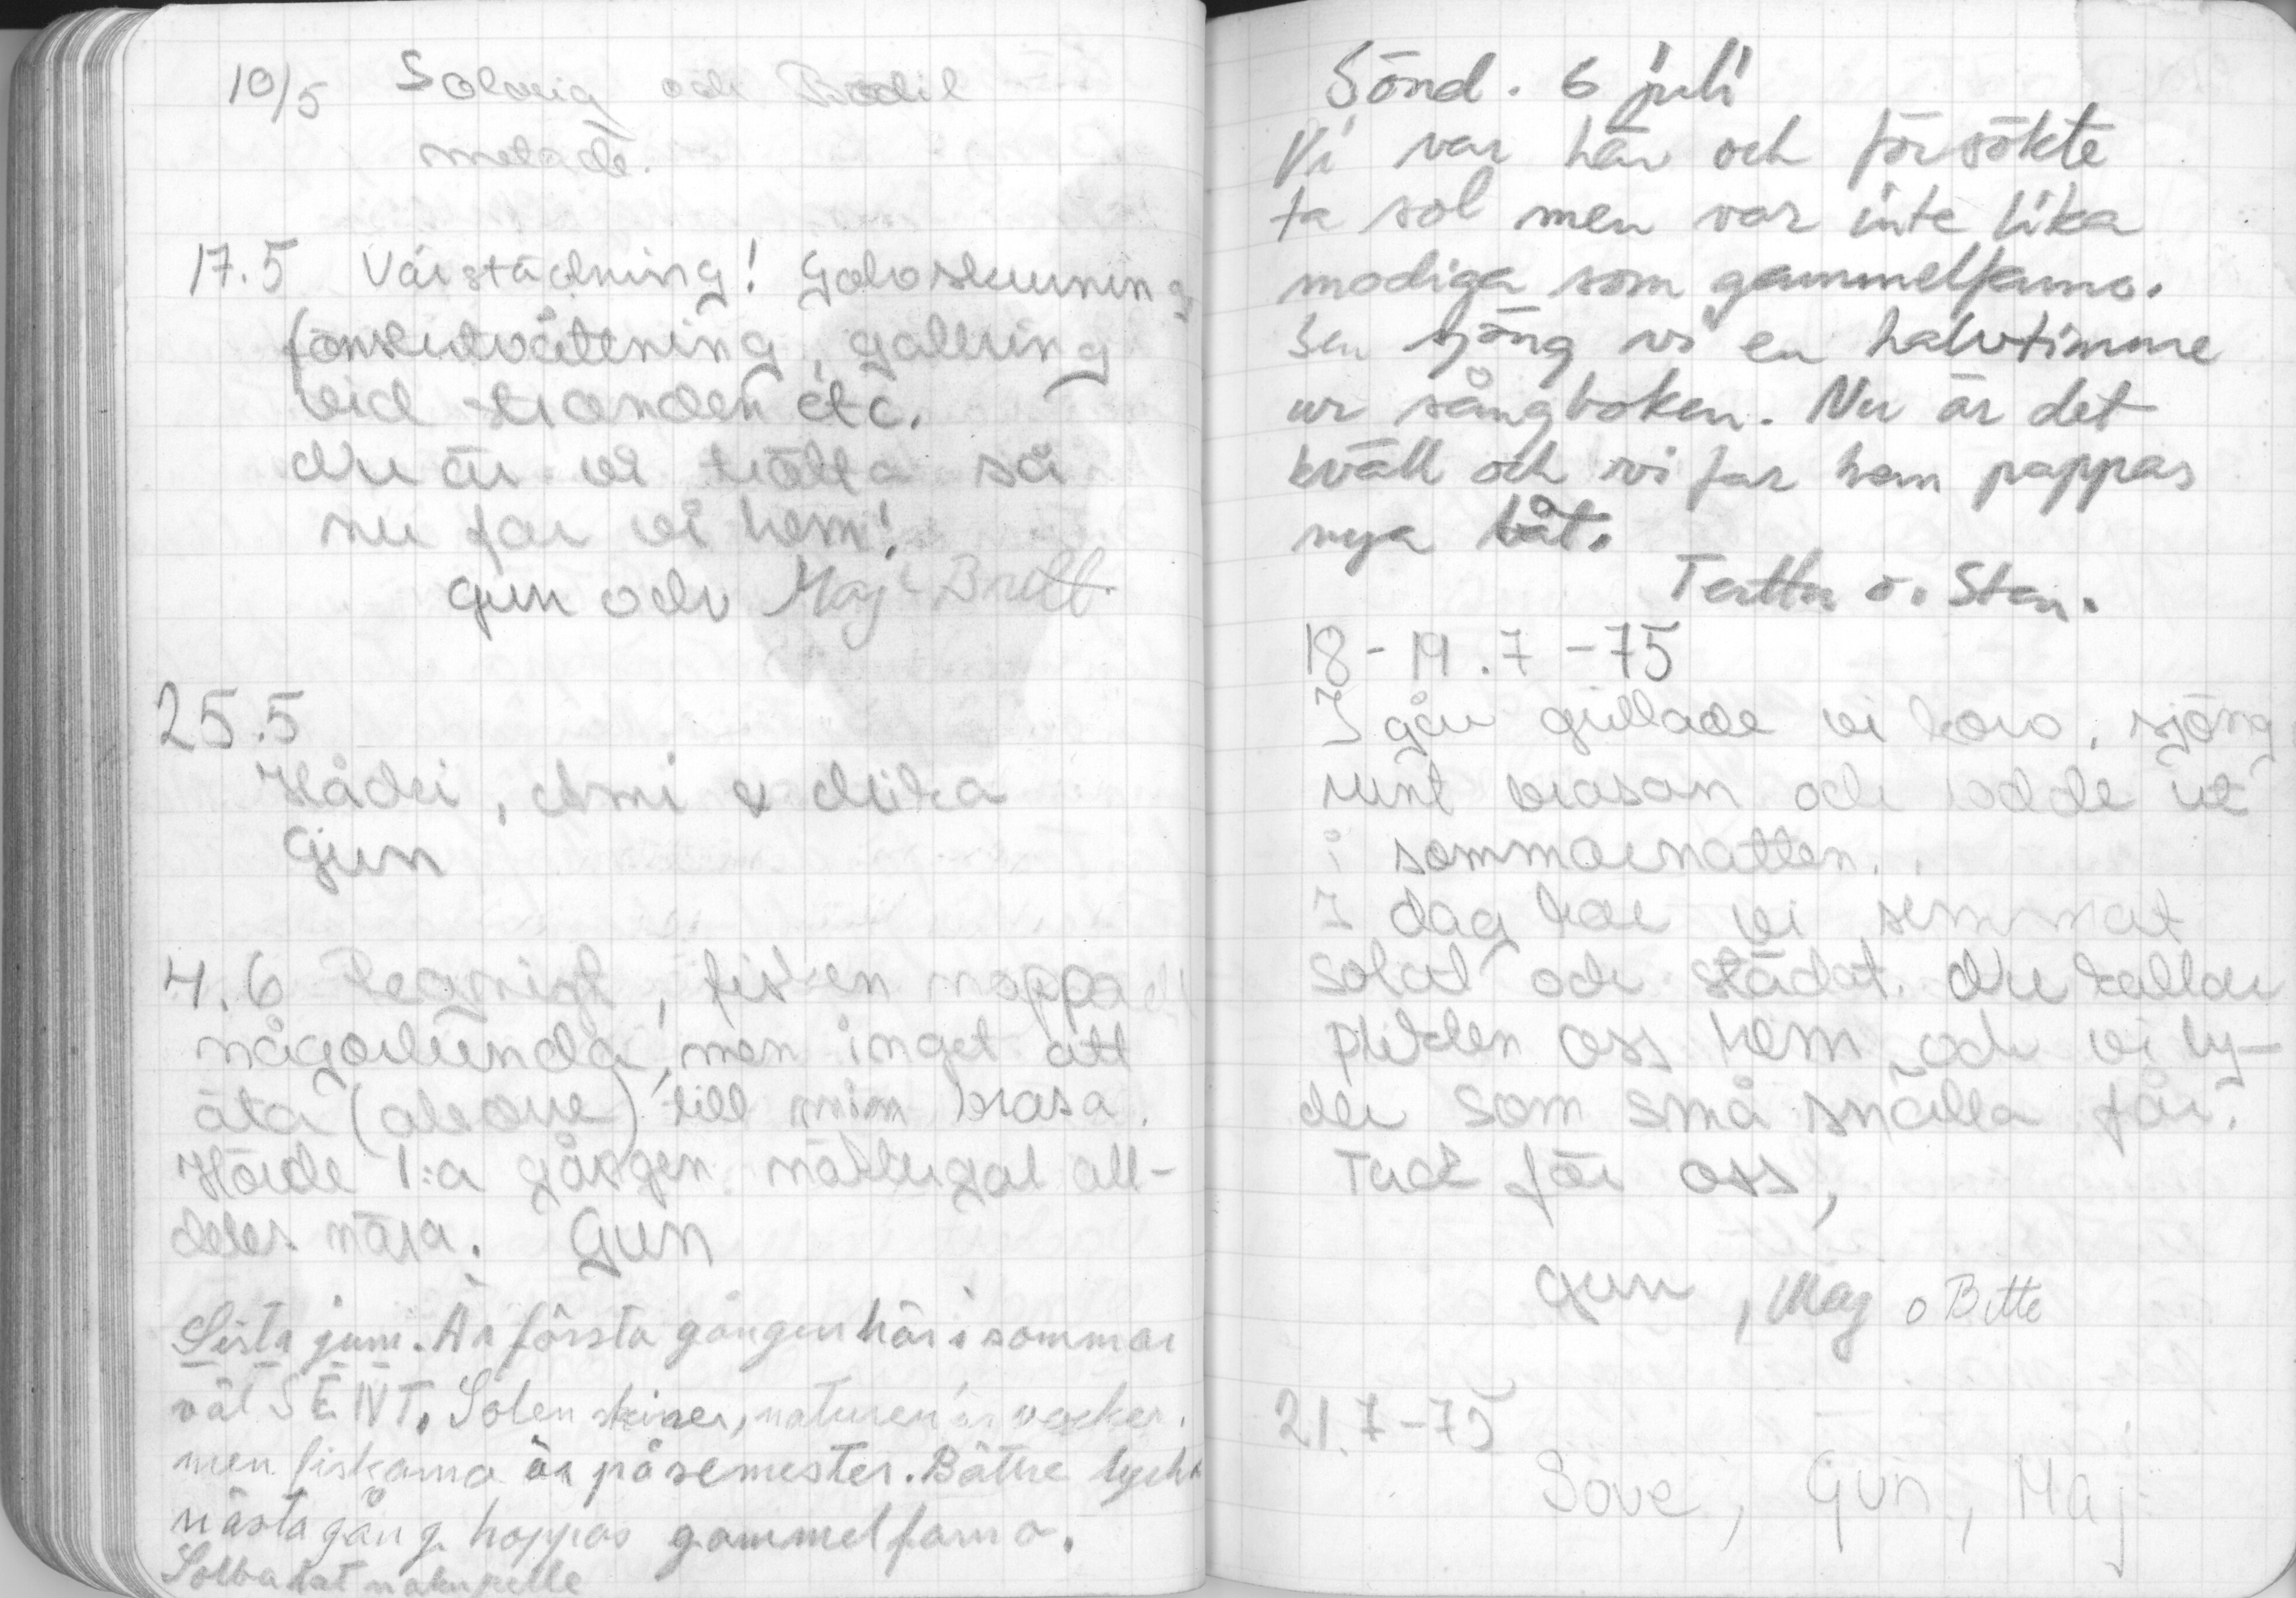 10/5 Solveig och Bodil
metade.
17.5 Vårstädning! Golvskurning,
fönstertvättning, gallring
vid stranden etc.
Nu är vi trötta så
nu far vi hem!
Gun och Maj-Britt.
25.5
Hådri, Ami & Mika
Gun
4.6 Regnigt, fisken nappade
någorlunda, men inget att
äta (abborre) till min brasa.
Hörde 1:a gången näktergal all-
deles nära. Gun
Sista juni. Är första gången här i sommar
väl SENT. Solen skiner, naturen är vacker.
men fiskarna är på semester. Bättre lycka
nästa gång hoppas gammelfamo.
Solbadat nakupelle
Sönd. 6 juli
Vi var här och försökte
ta sol men var inte lika
modiga som gammelfamo.
Sen sjöng vi en halvtimme
ur sångboken. Nu är det
kväll och vi far hem pappas
nya båt.
Terttu o. Sten.
18-19.7-75
I går grillade vi korv, sjöng
runt brasan och rodde ut
i sommarnatten.
I dag har vi simmat
solat och städat. Nu kallar
plikten oss hem och vi ly-
der som små snälla får.
Tack för oss,
Gun, Maj o Bitte
21.7-75
Sove, Gun, Maj